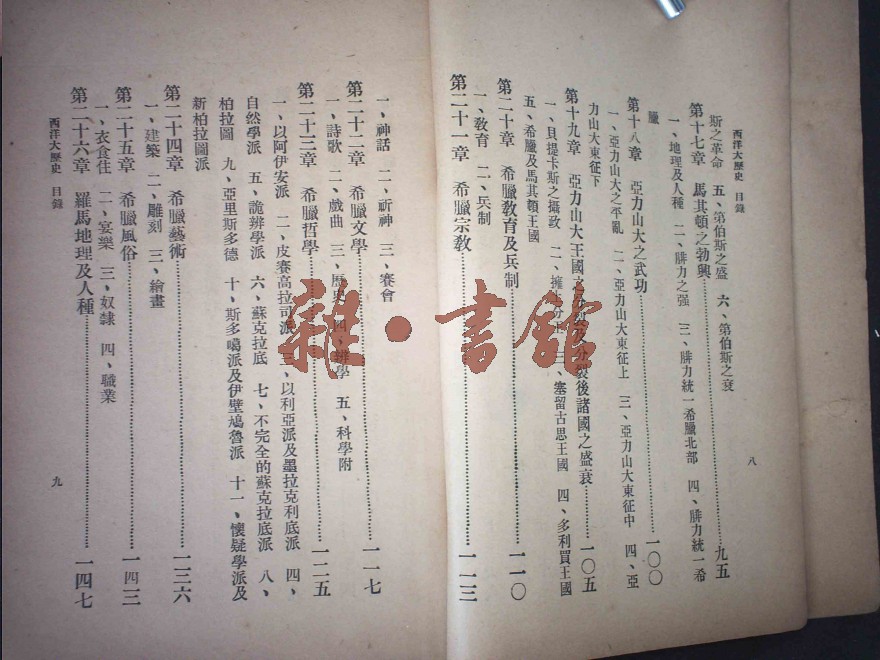 西洋大歷史 目錄
八
斯之革命 五、第伯斯之盛 六、第伯斯之衰
第十七章 馬其頓之勃興……九五
一、地理及人種 二、腓力之强 三、腓力統一希臘北部 四、腓力統一希
臘
第十八章 亞力山大之武功……一〇〇
一、亞力山大之平亂 二、亞力山大東征上 三、亞力山大東征中 四、亞
力山大東征下
第十九章 亞力山大王國之分裂及分裂後諸國之盛衰……一〇五
一、貝提卡斯之攝政 二、擁 分 三、塞留古思王國 四、多利買王國
五、希臘及馬其頓王國
第二十章 希臘敎育及兵制……一一〇
一、敎育 二、兵制
第二十一章 希臘宗敎……一一三
一、神話 二、祈神 三、賽會
第二十二章 希臘文學……一一七
一、詩歌 二、戲曲 三、歷史 四、辨學 五、科學附
第二十三章 希臘哲學……一二五
一、以阿伊安派 二、皮賽高拉司派 三、以利亞派及墨拉克利底派 四、
自然學派 五、詭辨學派 六、蘇克拉底 七、不完全的蘇克拉底派 八、
柏拉圖 九、亞里斯多德 十、斯多噶派及伊壁鳩魯派 十一、懷疑學派及
新柏拉圖派
第二十四章 希臘藝術……一三六
一、建築 二、雕刻 三、繪畫
第二十五章 希臘風俗……一四三
一、衣食住 二、宴樂 三、奴隸 四、職業
第二十六章 羅馬地理及人種……一四七
西洋大歷史 目錄
九
雜·書館